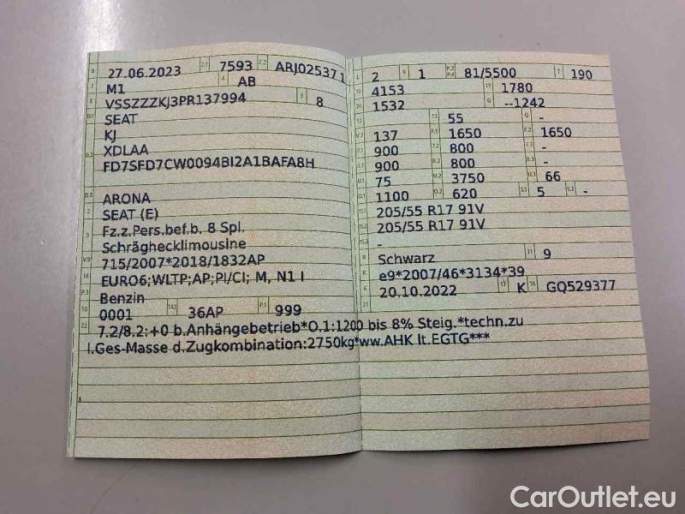 27.06.2023 7593 ARJ025371
M1 AB
VSSZZZKJ3PR137994 8
SEAT
KJ
XDLAA
FD7SFD7CW0094BI2A1BAFA8H
ARONA
SEAT (E)
Fz.z.Pers.bef.b. 8 Spl.
Schräghecklimousine
715/2007*2018/1832AP
EURO6;WLTP;AP;PI/CI; M, N1 I
Benzin
0001 36AP 999
7.2/8.2:+0 b.Anhängebetrieb*O.1:1200 bis 8% Steig.*techn.zu
l.Ges-Masse d.Zugkombination:2750kg*ww.AHK lt.EGTG***
2 1 81/5500 190
4153 1780
1532 --1242
55 -
137 1650 1650
900 800 -
900 800 -
75 3750 66
1100 620 5 -
205/55 R17 91V
205/55 R17 91V
-
Schwarz 9
e9*2007/46*3134*39
20.10.2022 K GQ529377
CarOutlet.eu